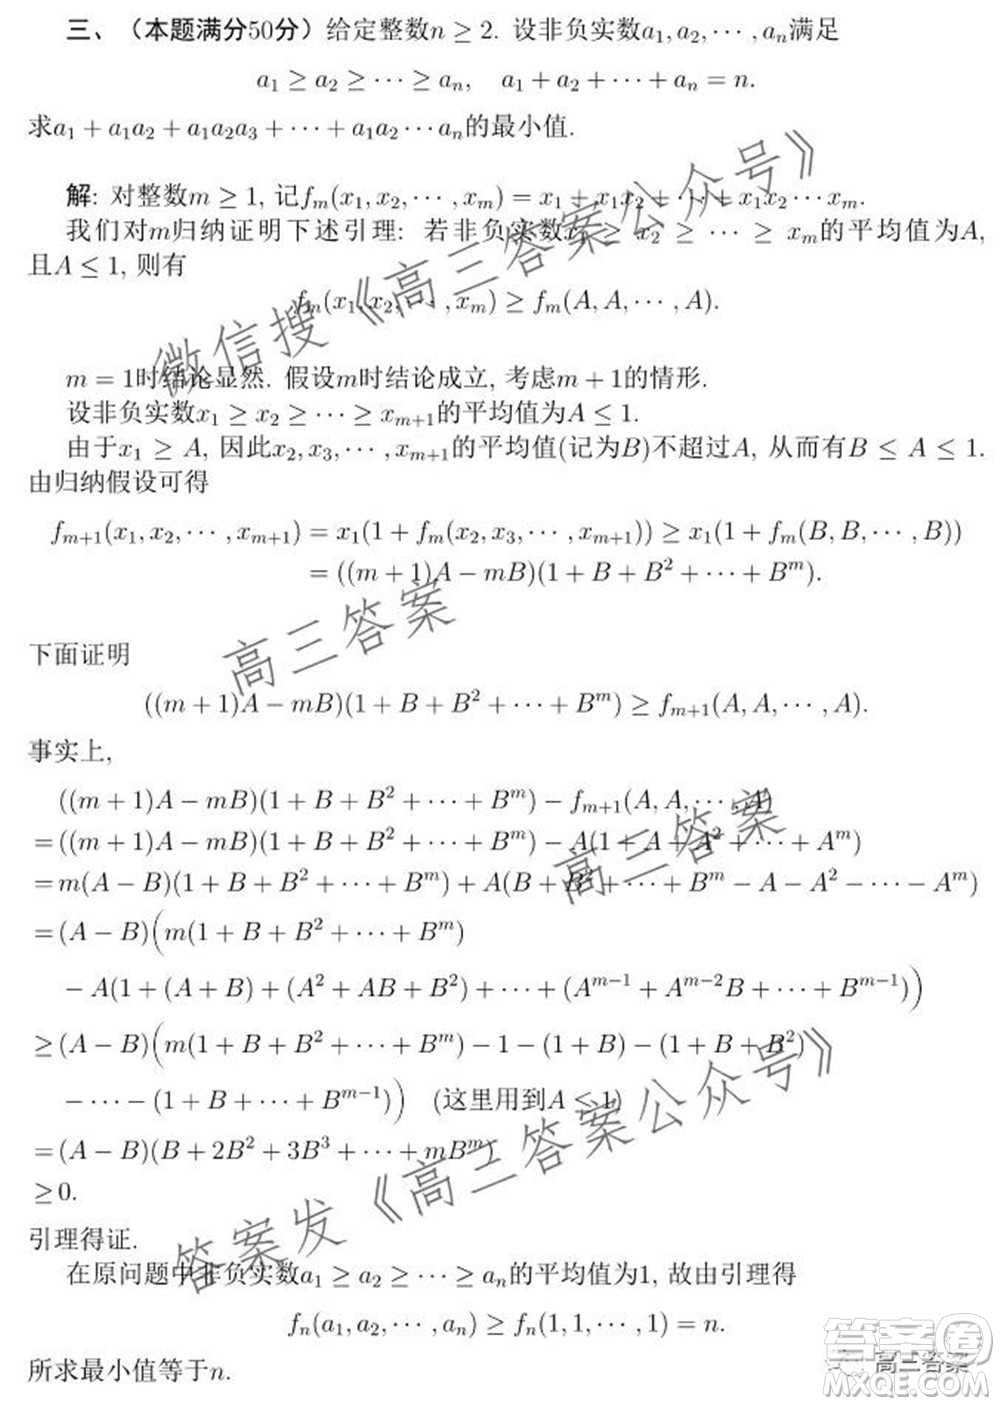 三、（本题满分50分）给定整数n ≥ 2. 设非负实数a₁, a₂, ⋯ , aₙ满足
a₁ ≥ a₂ ≥ ⋯ ≥ aₙ, a₁ + a₂ + ⋯ + aₙ = n.
求a₁ + a₁a₂ + a₁a₂a₃ + ⋯ + a₁a₂ ⋯ aₙ的最小值.
解: 对整数m ≥ 1, 记fₘ(x₁, x₂, ⋯ , xₘ) = x₁ + x₁x₂ + ⋯ + x₁x₂ ⋯ xₘ.
我们对m归纳证明下述引理: 若非负实数x₁ ≥ x₂ ≥ ⋯ ≥ xₘ的平均值为A,
且A ≤ 1, 则有
fₘ(x₁, x₂, ⋯ , xₘ) ≥ fₘ(A, A, ⋯ , A).
m = 1时结论显然. 假设m时结论成立, 考虑m + 1的情形.
设非负实数x₁ ≥ x₂ ≥ ⋯ ≥ xₘ₊₁的平均值为A ≤ 1.
由于x₁ ≥ A, 因此x₂, x₃, ⋯ , xₘ₊₁的平均值(记为B)不超过A, 从而有B ≤ A ≤ 1.
由归纳假设可得
fₘ₊₁(x₁, x₂, ⋯ , xₘ₊₁) = x₁(1 + fₘ(x₂, x₃, ⋯ , xₘ₊₁)) ≥ x₁(1 + fₘ(B, B, ⋯ , B))
= ((m + 1)A − mB)(1 + B + B² + ⋯ + Bᵐ).
下面证明
((m + 1)A − mB)(1 + B + B² + ⋯ + Bᵐ) ≥ fₘ₊₁(A, A, ⋯ , A).
事实上,
((m + 1)A − mB)(1 + B + B² + ⋯ + Bᵐ) − fₘ₊₁(A, A, ⋯ , A)
= ((m + 1)A − mB)(1 + B + B² + ⋯ + Bᵐ) − A(1 + A + A² + ⋯ + Aᵐ)
= m(A − B)(1 + B + B² + ⋯ + Bᵐ) + A(B + B² + ⋯ + Bᵐ − A − A² − ⋯ − Aᵐ)
= (A − B)(m(1 + B + B² + ⋯ + Bᵐ)
− A(1 + (A + B) + (A² + AB + B²) + ⋯ + (Aᵐ⁻¹ + Aᵐ⁻²B + ⋯ + Bᵐ⁻¹)))
≥ (A − B)(m(1 + B + B² + ⋯ + Bᵐ) − 1 − (1 + B) − (1 + B + B²)
− ⋯ − (1 + B + ⋯ + Bᵐ⁻¹)) (这里用到A ≤ 1)
= (A − B)(B + 2B² + 3B³ + ⋯ + mBᵐ)
≥ 0.
引理得证.
在原问题中非负实数a₁ ≥ a₂ ≥ ⋯ ≥ aₙ的平均值为1, 故由引理得
fₙ(a₁, a₂, ⋯ , aₙ) ≥ fₙ(1, 1, ⋯ , 1) = n.
所求最小值等于n.
微信搜《高三答案公众号》
高三答案
高三答案
答案发《高三答案公众号》
高三答案
答案圈
MXQE.COM